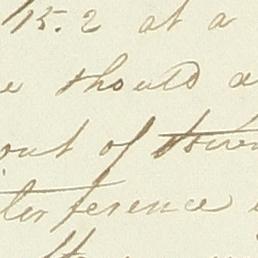 15.2 at a
should a
out of
terference